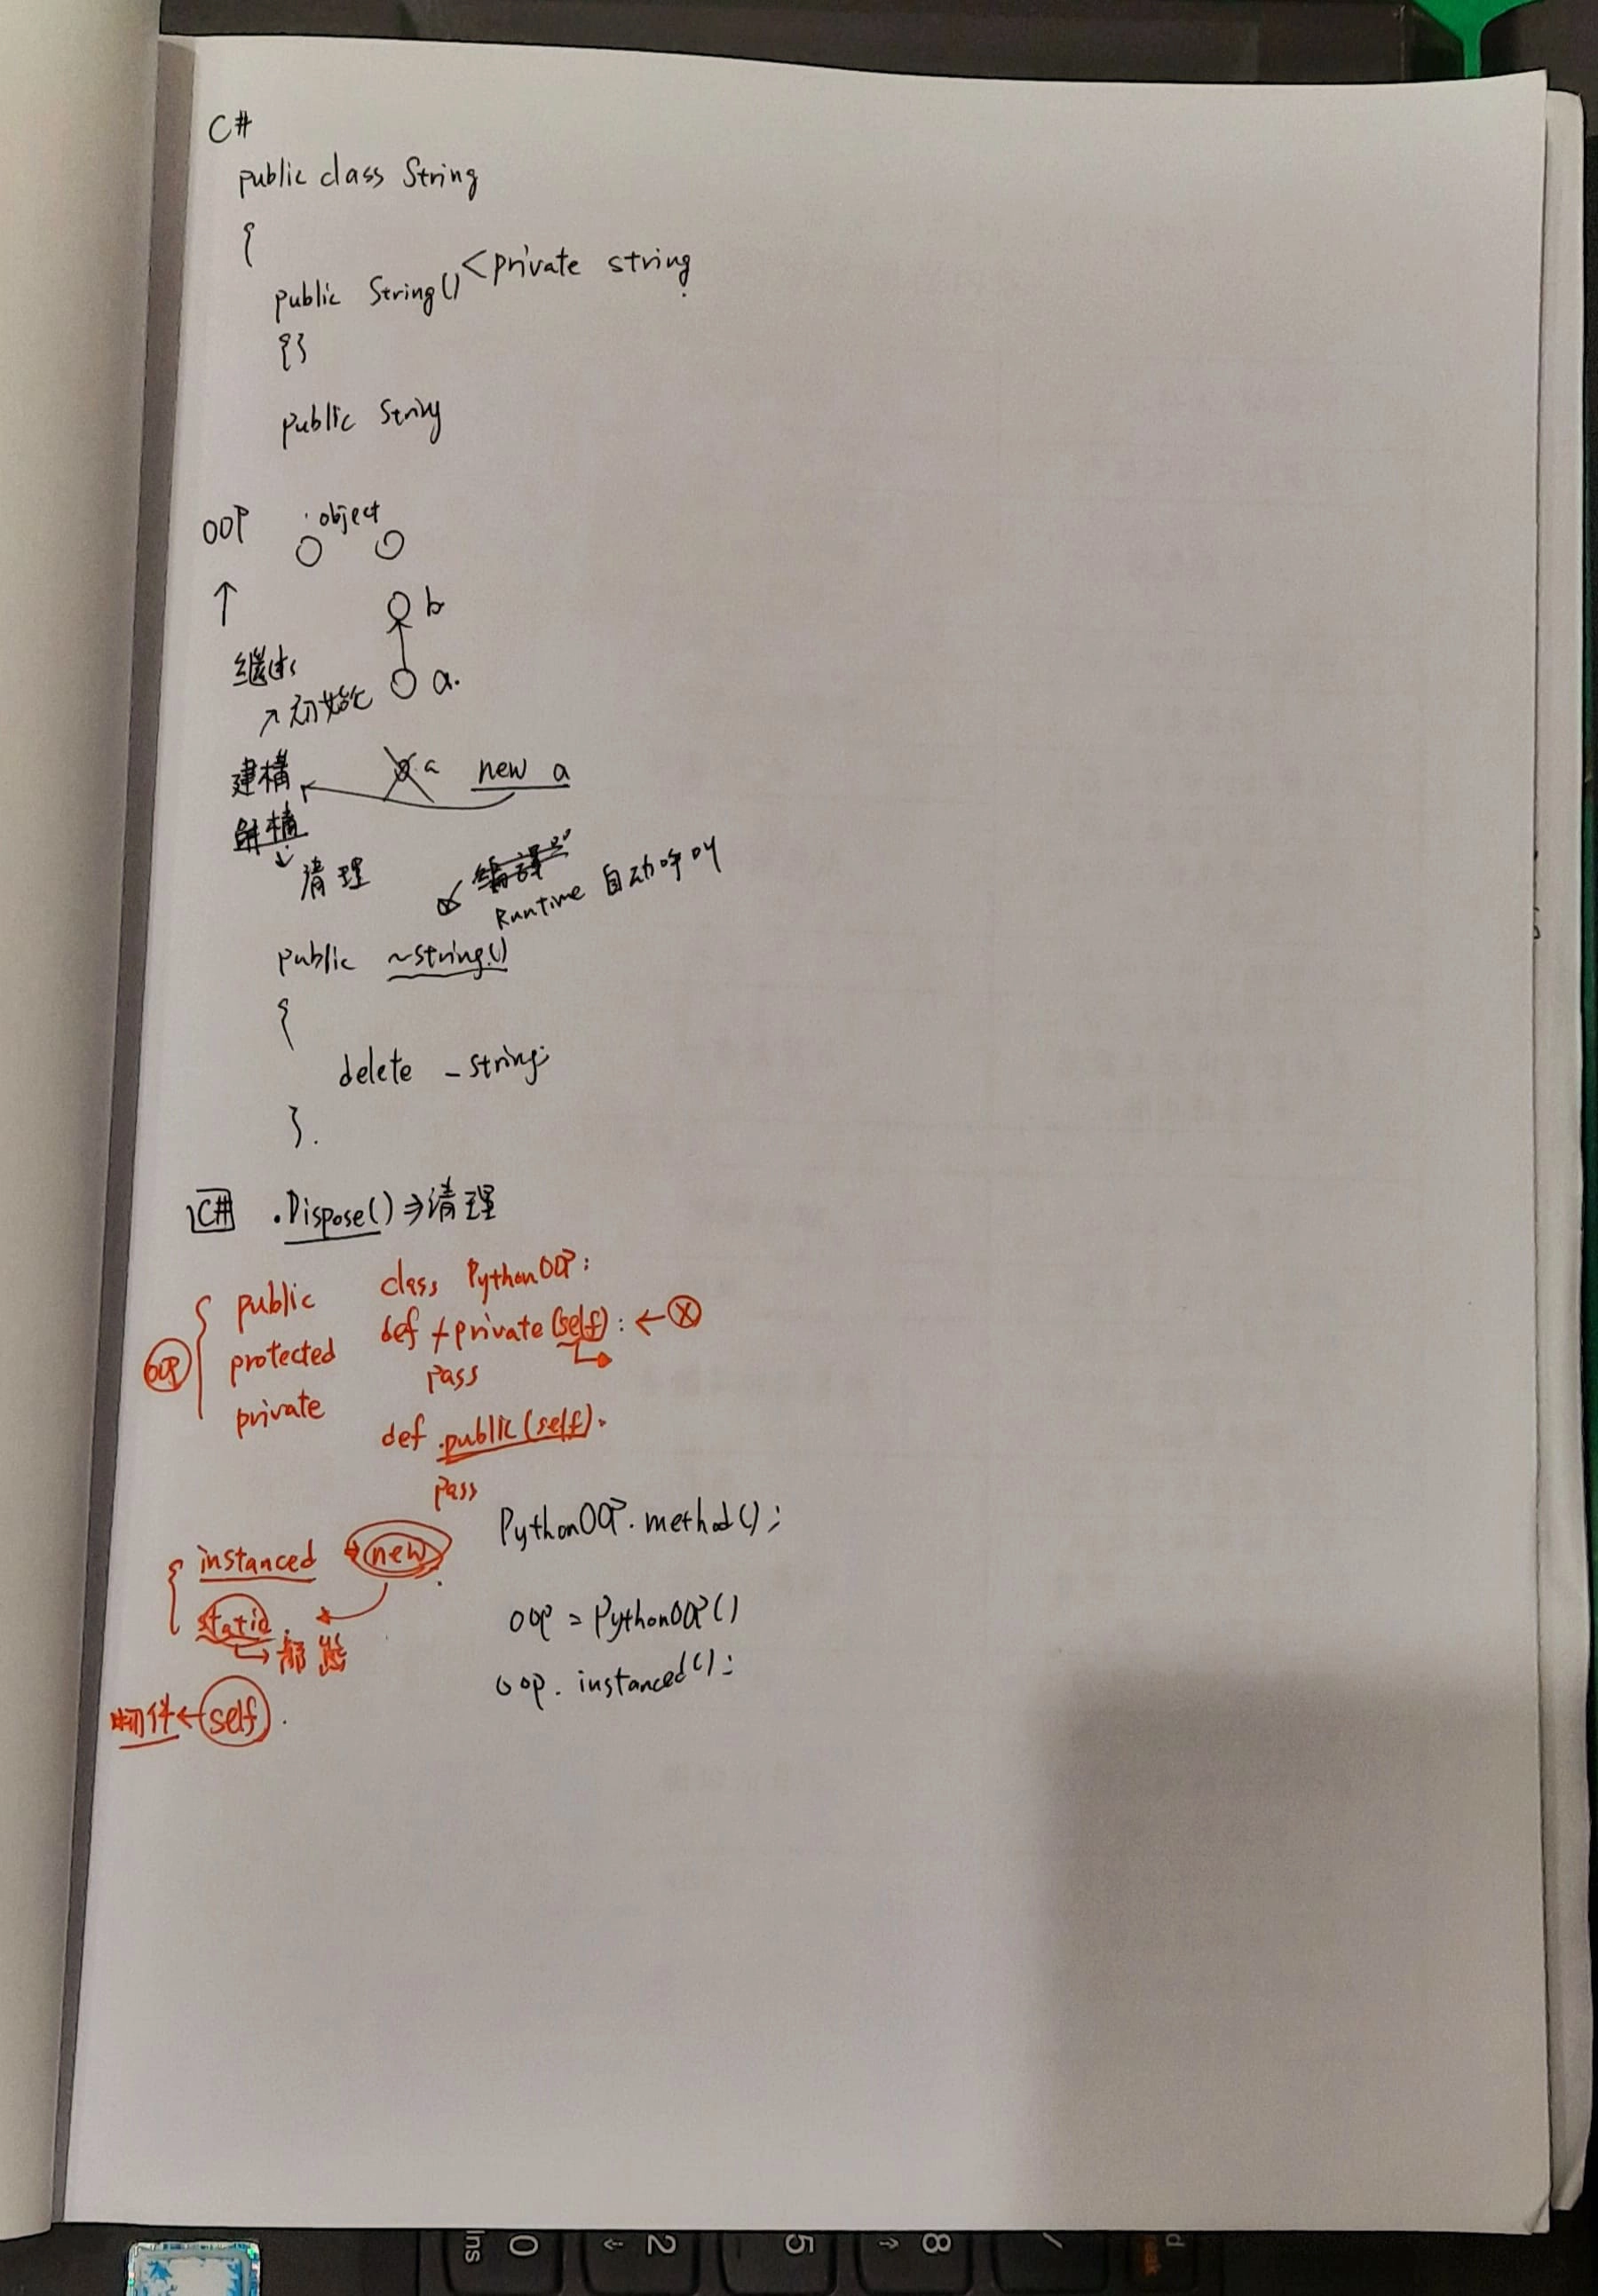 C#
public class String
{
public String() < private string
{}
public String
OOP object
↑ b
继承 a.
↗ 初始化
建構 a new a
解構
↓ 清理
編譯器
Runtime 自动呼叫
public ~string()
{
delete _string;
}.
C# .Dispose() ⇒ 清理
OOP { public
protected
private
class PythonOOP:
def +private(self): ← ⓧ
pass
def .public(self):
pass
PythonOOP.method();
{ instanced → new
static.
↳ 都能
oop = PythonOOP()
oop. instanced();
物件 ← self.
Ins
0
2
5
8
/